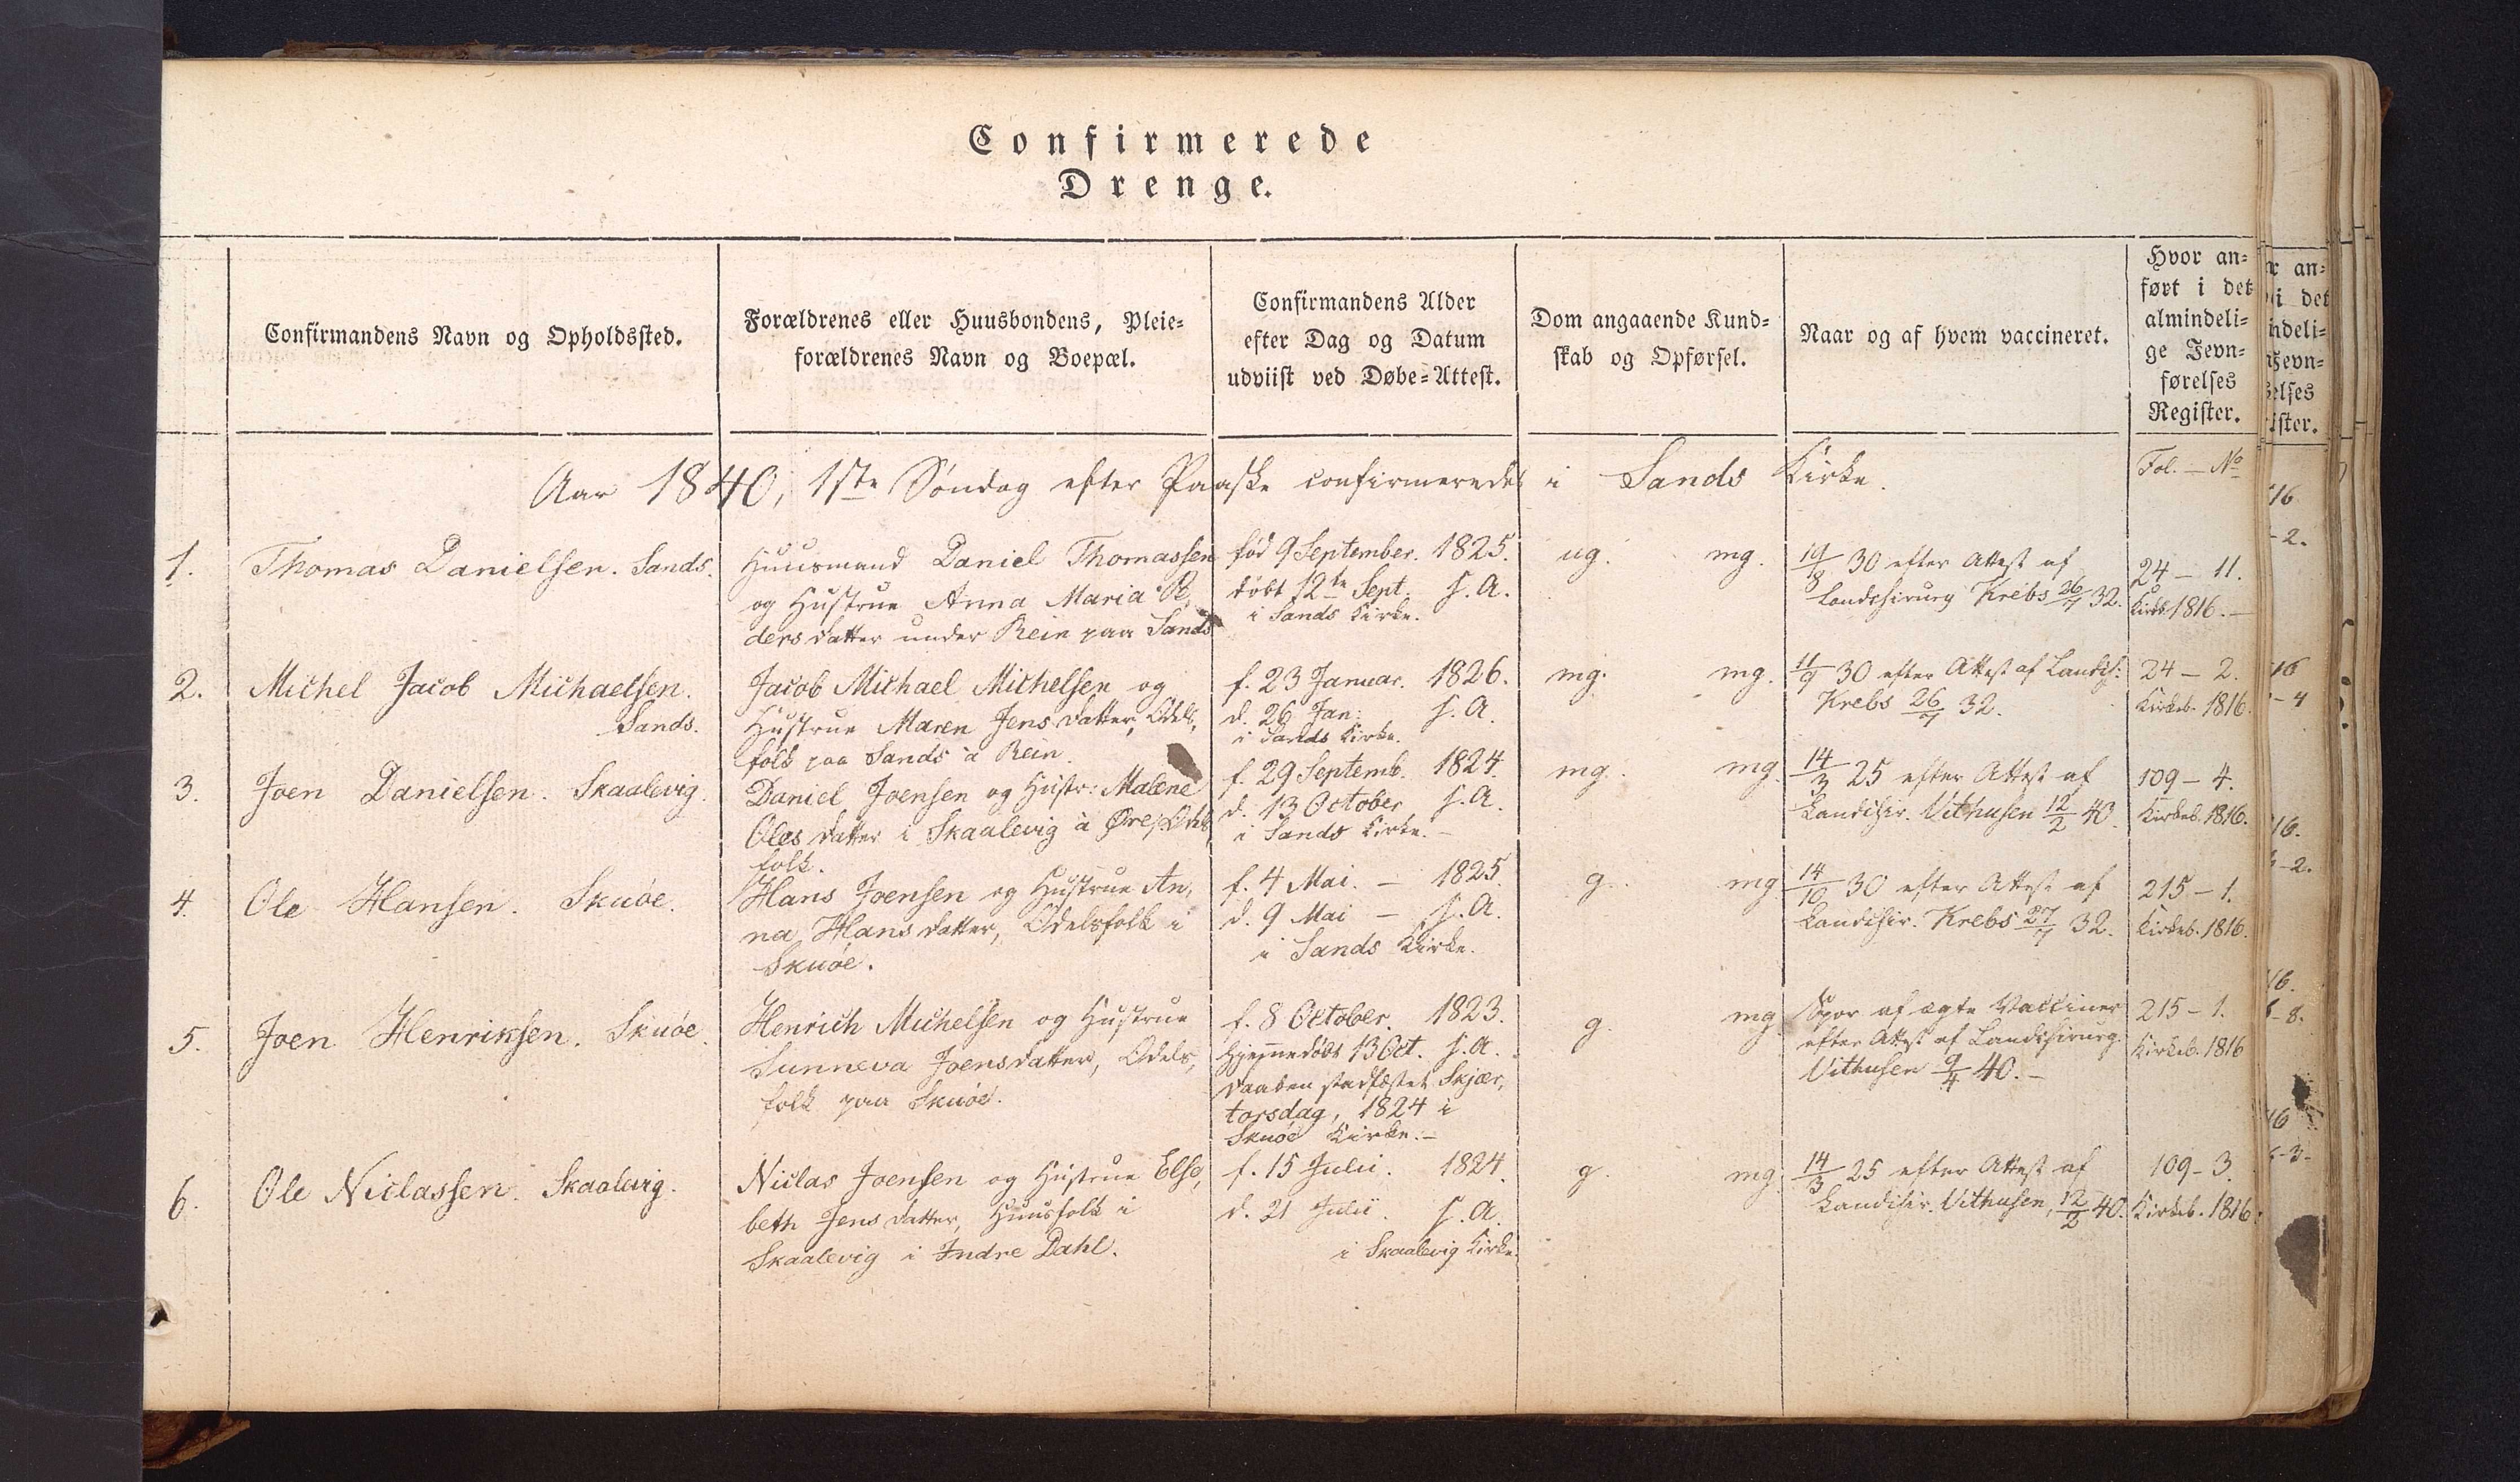 Confirmerede
Drenge.
Confirmandens Navn og Opholdssted.
Forældrenes eller Huusbondens, Pleie-
forældrenes Navn og Boepæl.
Confirmandens Alder
efter Dag og Datum
udviist ved Døbe-Attest.
Dom angaaende Kund-
skab og Opførsel.
Naar og af hvem vaccineret.
Hvor an-
ført i det
almindeli-
ge Jevn-
førelses
Register.
Aar 1840, 1ste Søndag efter Paaske confirmeredes i Sands Kirke.
Fol. — No
1.
Thomas Danielsen. Sands.
Huusmand Daniel Thomassen
og Hustrue Anna Maria Pe,
ders datter under Rein paa Sands
fød 9 September. 1825.
døbt 12te Sept. s. A.
i Sands Kirke.
ug. mg.
19/8 30 efter Attest af
Landchirurg Krebs 26/7 32.
24 — 11.
Kirkb. 1816. —
2.
Michel Jacob Michaelsen.
Sands.
Jacob Michael Michelsen og
Hustrue Maren Jens datter, Odels,
folk paa Sands à Rein.
f. 23 Januar. 1826.
d. 26 Jan: s. A.
i Sands Kirke.
mg. mg.
11/9 30 efter Attest af Landch:
Krebs 26/7 32.
24 — 2.
Kirkeb. 1816.
3.
Joen Danielsen. Skaalevig.
Daniel Joensen og Hustr: Malene
Oles datter i Skaalevig à Øre, Odels,
folk.
f. 29 Septemb. 1824.
d. 13 October s. A.
i Sands Kirke. —
mg. mg.
14/3 25 efter Attest af
Landchir. Vithusen 12/2 40.
109 — 4.
Kirkeb. 1816.
4.
Ole Hansen. Skuøe.
Hans Joensen og Hustrue An,
na Hans datter, Odelsfolk i
Skuøe.
f. 4 Mai. — 1825.
d. 9 Mai — s. A.
i Sands Kirke.
g. mg.
14/10 30 efter Attest af
Landchir. Krebs 27/7 32.
215 — 1.
Kirkeb. 1816.
5.
Joen Henriksen. Skuøe.
Henrich Michelsen og Hustrue
Sunneva Joensdatter, Odels,
folk paa Skuøe.
f. 8 October. 1823.
Hjemmedøbt 13 Oct. s. A.
Daaben stadfæstet Skjær,
torsdag, 1824 i
Skuøe Kirke. —
g. mg.
Spor af ægte Vacciner
efter Attest af Landchirurg.
Vithusen 9/4 40. —
215 — 1.
Kirkeb. 1816
6.
Ole Niclassen. Skaalevig.
Niclas Joensen og Hustrue Else,
beth Jens datter, Huusfolk i
Skaalevig i Indre Dahl.
f. 15 Julii. 1824.
d. 21 Julii. s. A.
i Skaalevig Kirke.
g. mg.
14/3 25 efter Attest af
Landchir. Vithusen, 12/2 40.
109 — 3.
Kirkeb. 1816.